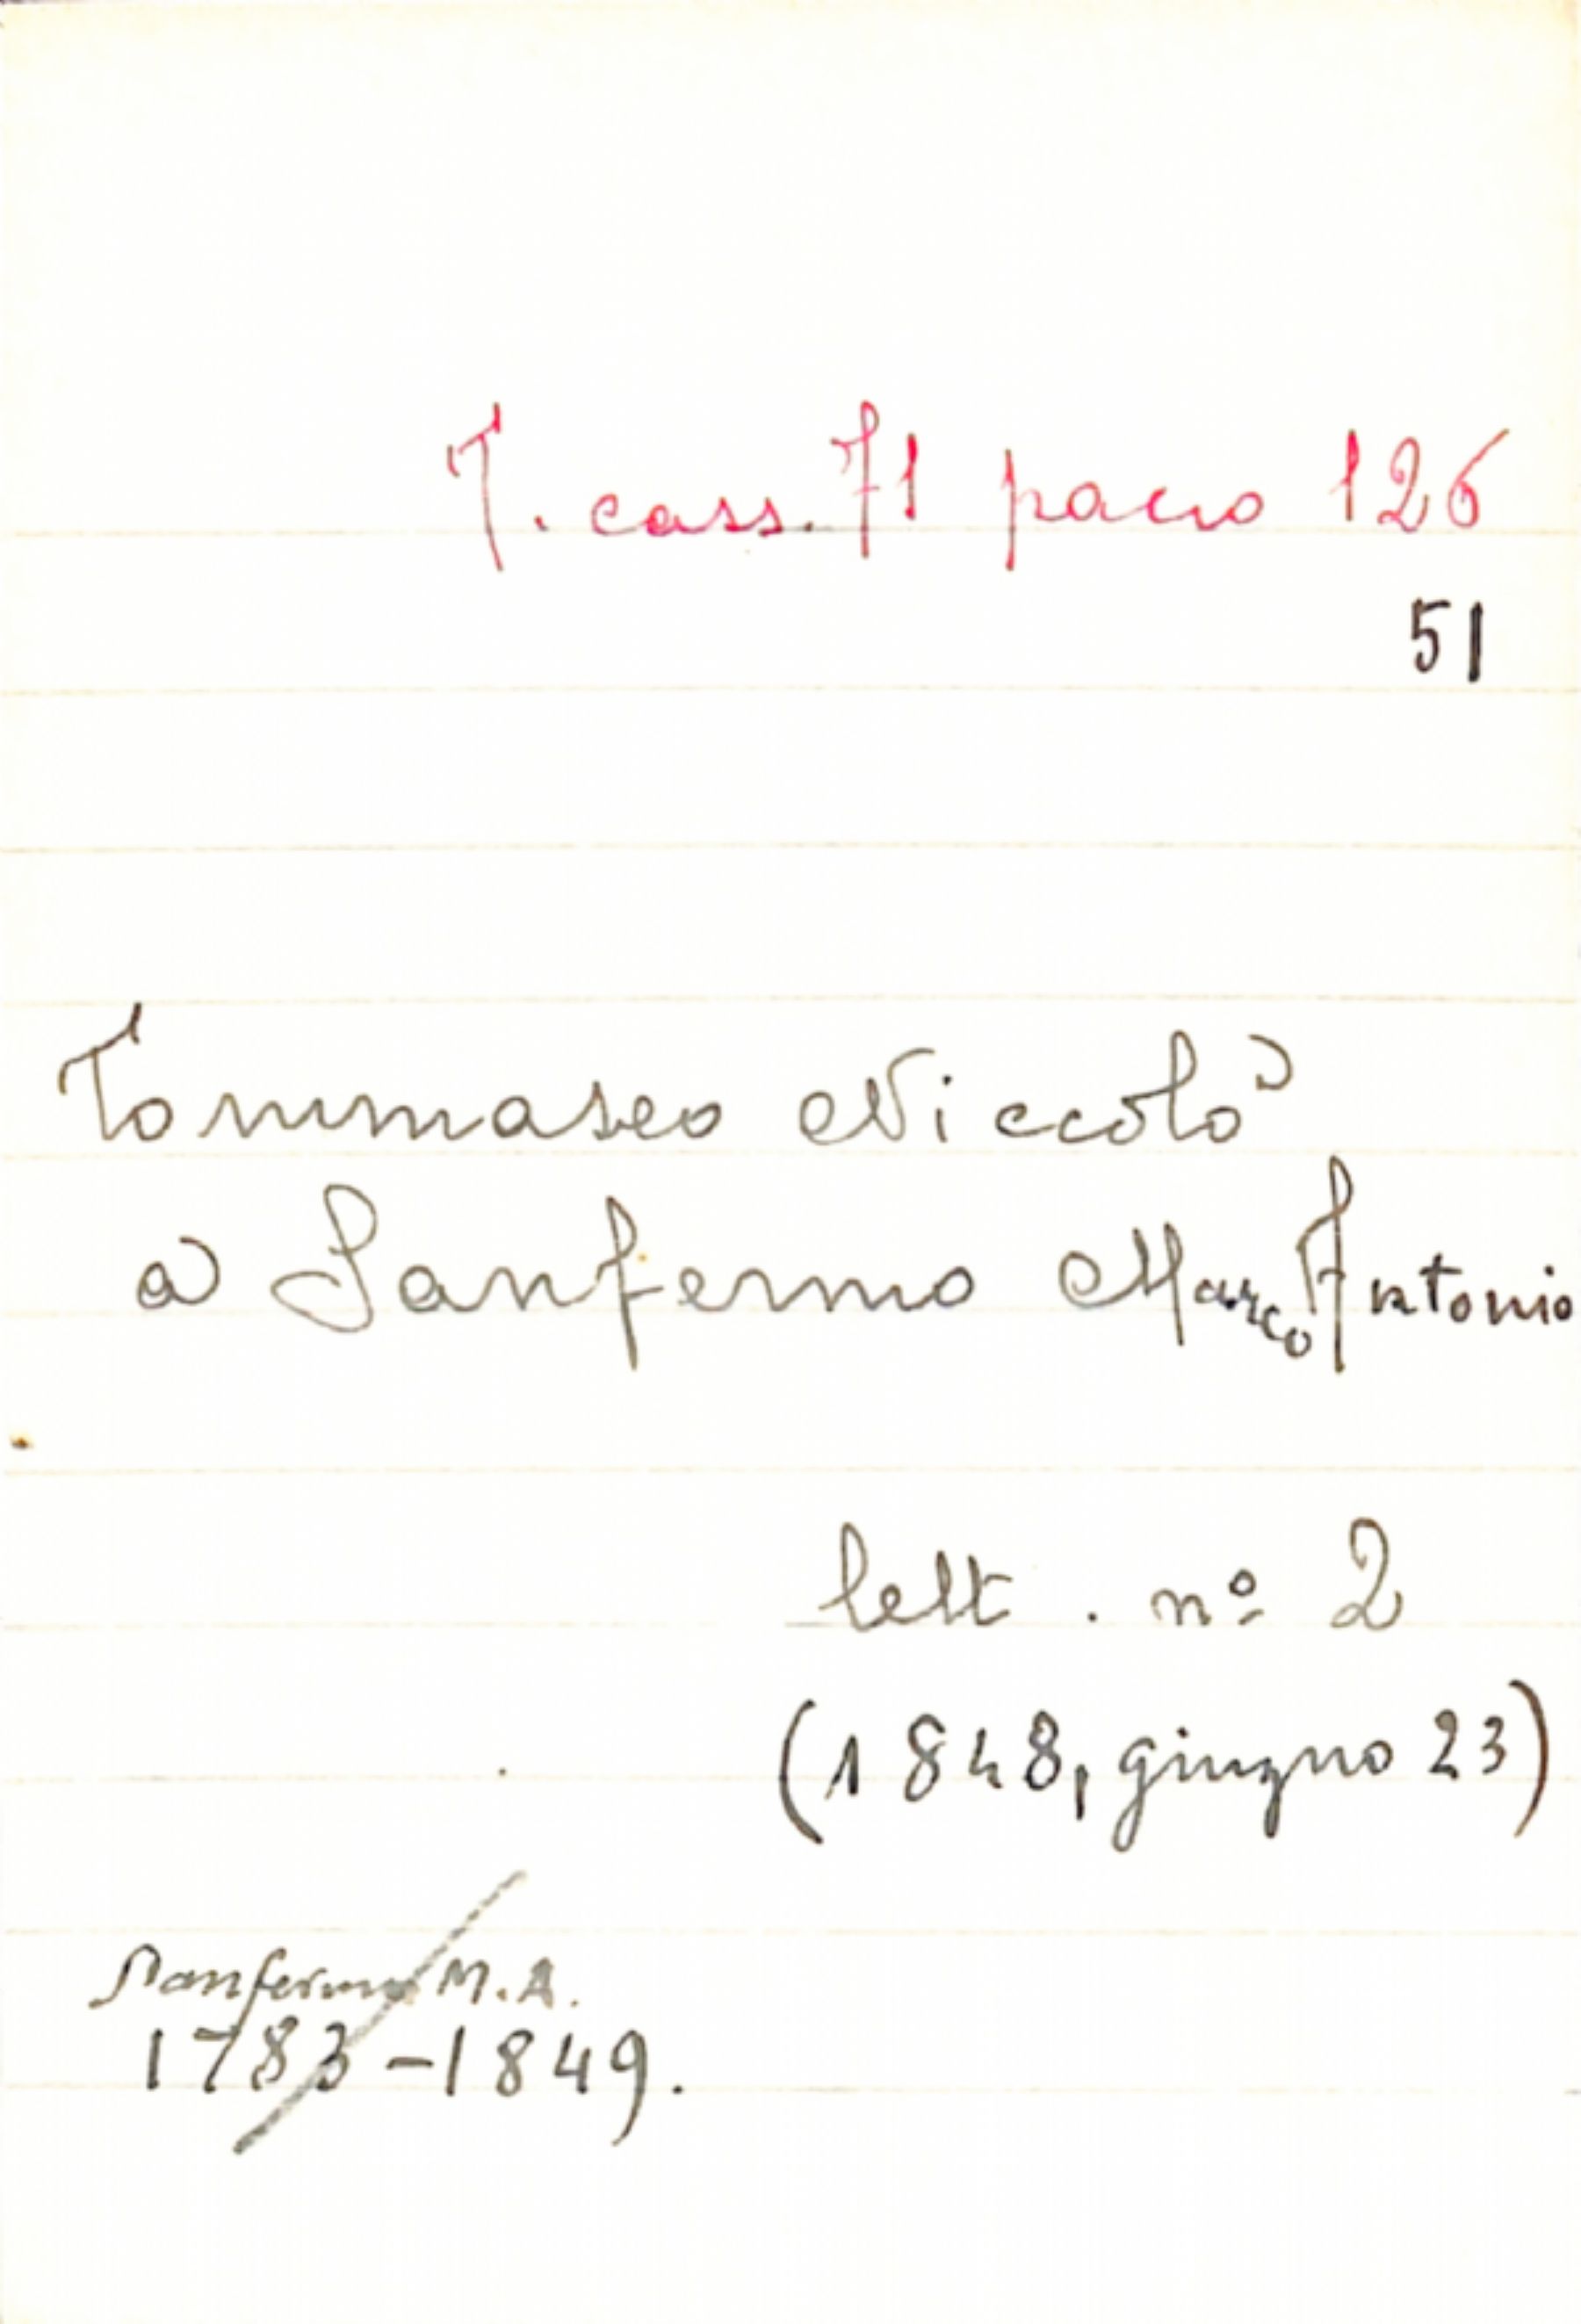 T. cass. 71 pacco 126
51
Tommaseo Niccolò
a Sanfermo Marco Antonio
lett. nº 2
(1848, giugno 23)
Sanfermo M.A.
1783-1849.